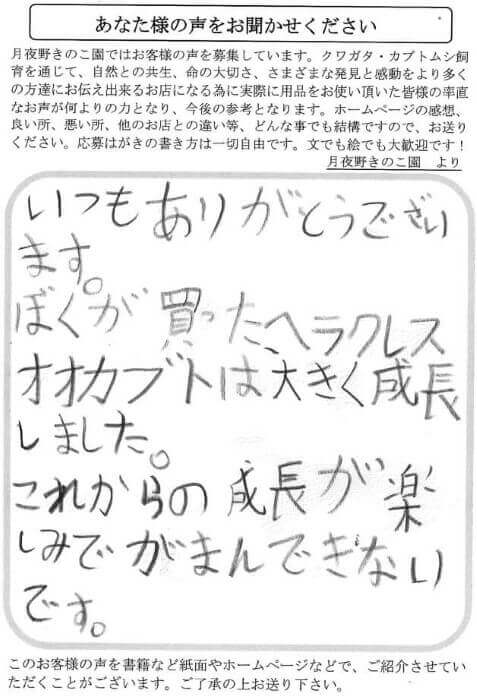 あなた様の声をお聞かせください
月夜野きのこ園ではお客様の声を募集しています。クワガタ・カブトムシ飼
育を通じて、自然との共生、命の大切さ、さまざまな発見と感動をより多く
の方達にお伝え出来るお店になる為に実際に用品をお使い頂いた皆様の率直
なお声が何よりの力となり、今後の参考となります。ホームページの感想、
良い所、悪い所、他のお店との違い等、どんな事でも結構ですので、お送り
ください。応募はがきの書き方は一切自由です。文でも絵でも大歓迎です！
月夜野きのこ園　より
いつもありがとうござい
ます。
ぼくが買ったヘラクレス
オオカブトは大きく成長
しました。
これからの成長が楽
しみでがまんできない
です。
このお客様の声を書籍など紙面やホームページなどで、ご紹介させてい
ただくことがございます。ご了承の上お送り下さい。